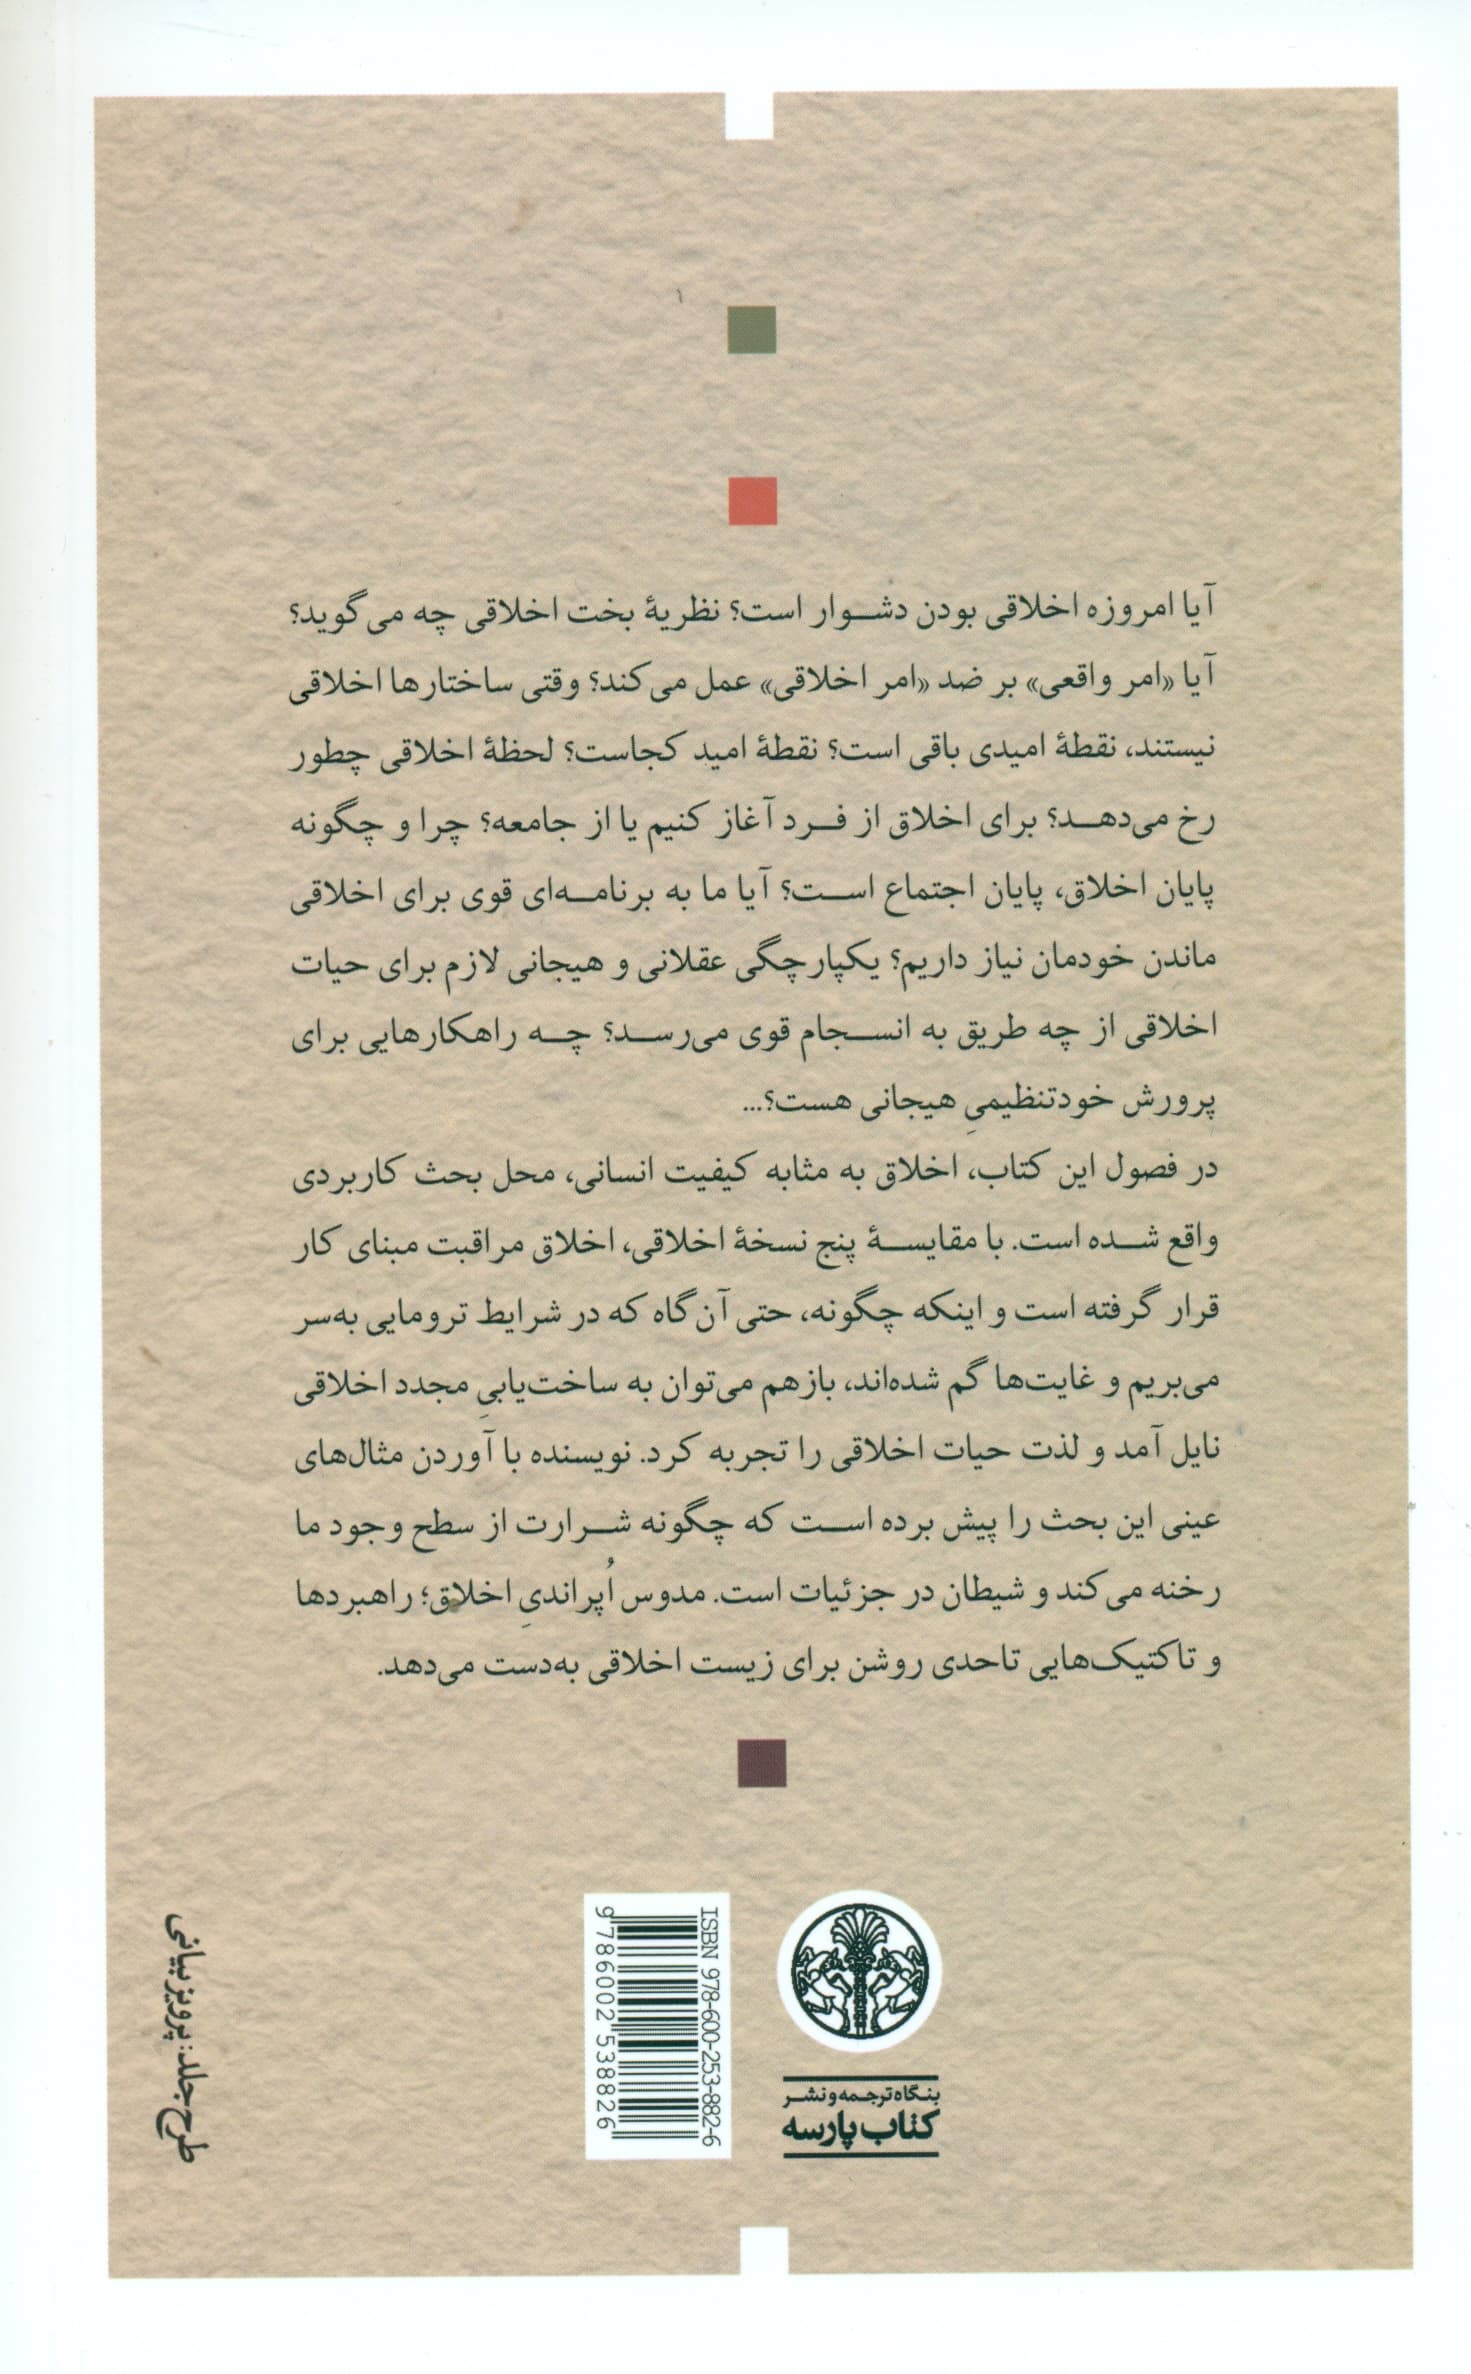 آیا امروزه اخلاقی بودن دشوار است؟ نظریهٔ بخت اخلاقی چه می‌گوید؟
آیا «امر واقعی» بر ضد «امر اخلاقی» عمل می‌کند؟ وقتی ساختارها اخلاقی
نیستند، نقطهٔ امیدی باقی است؟ نقطهٔ امید کجاست؟ لحظهٔ اخلاقی چطور
رخ می‌دهد؟ برای اخلاق از فرد آغاز کنیم یا از جامعه؟ چرا و چگونه
پایان اخلاق، پایان اجتماع است؟ آیا ما به برنامه‌ای قوی برای اخلاقی
ماندن خودمان نیاز داریم؟ یکپارچگی عقلانی و هیجانی لازم برای حیات
اخلاقی از چه طریق به انسجام قوی می‌رسد؟ چه راهکارهایی برای
پرورش خودتنظیمیِ هیجانی هست؟...
در فصول این کتاب، اخلاق به مثابه کیفیت انسانی، محل بحث کاربردی
واقع شده است. با مقایسهٔ پنج نسخهٔ اخلاقی، اخلاق مراقبت مبنای کار
قرار گرفته است و اینکه چگونه، حتی آن‌گاه که در شرایط ترومایی به‌سر
می‌بریم و غایت‌ها گم شده‌اند، بازهم می‌توان به ساخت‌یابیِ مجدد اخلاقی
نایل آمد و لذت حیات اخلاقی را تجربه کرد. نویسنده با آوردن مثال‌های
عینی این بحث را پیش برده است که چگونه شرارت از سطح وجود ما
رخنه می‌کند و شیطان در جزئیات است. مدوس اُپراندیِ اخلاق؛ راهبردها
و تاکتیک‌هایی تاحدی روشن برای زیست اخلاقی به‌دست می‌دهد.
ISBN 978-600-253-882-6
9 786002 538826
بنگاه ترجمه و نشر
کتاب پارسه
طرح جلد: پرویز بیانی